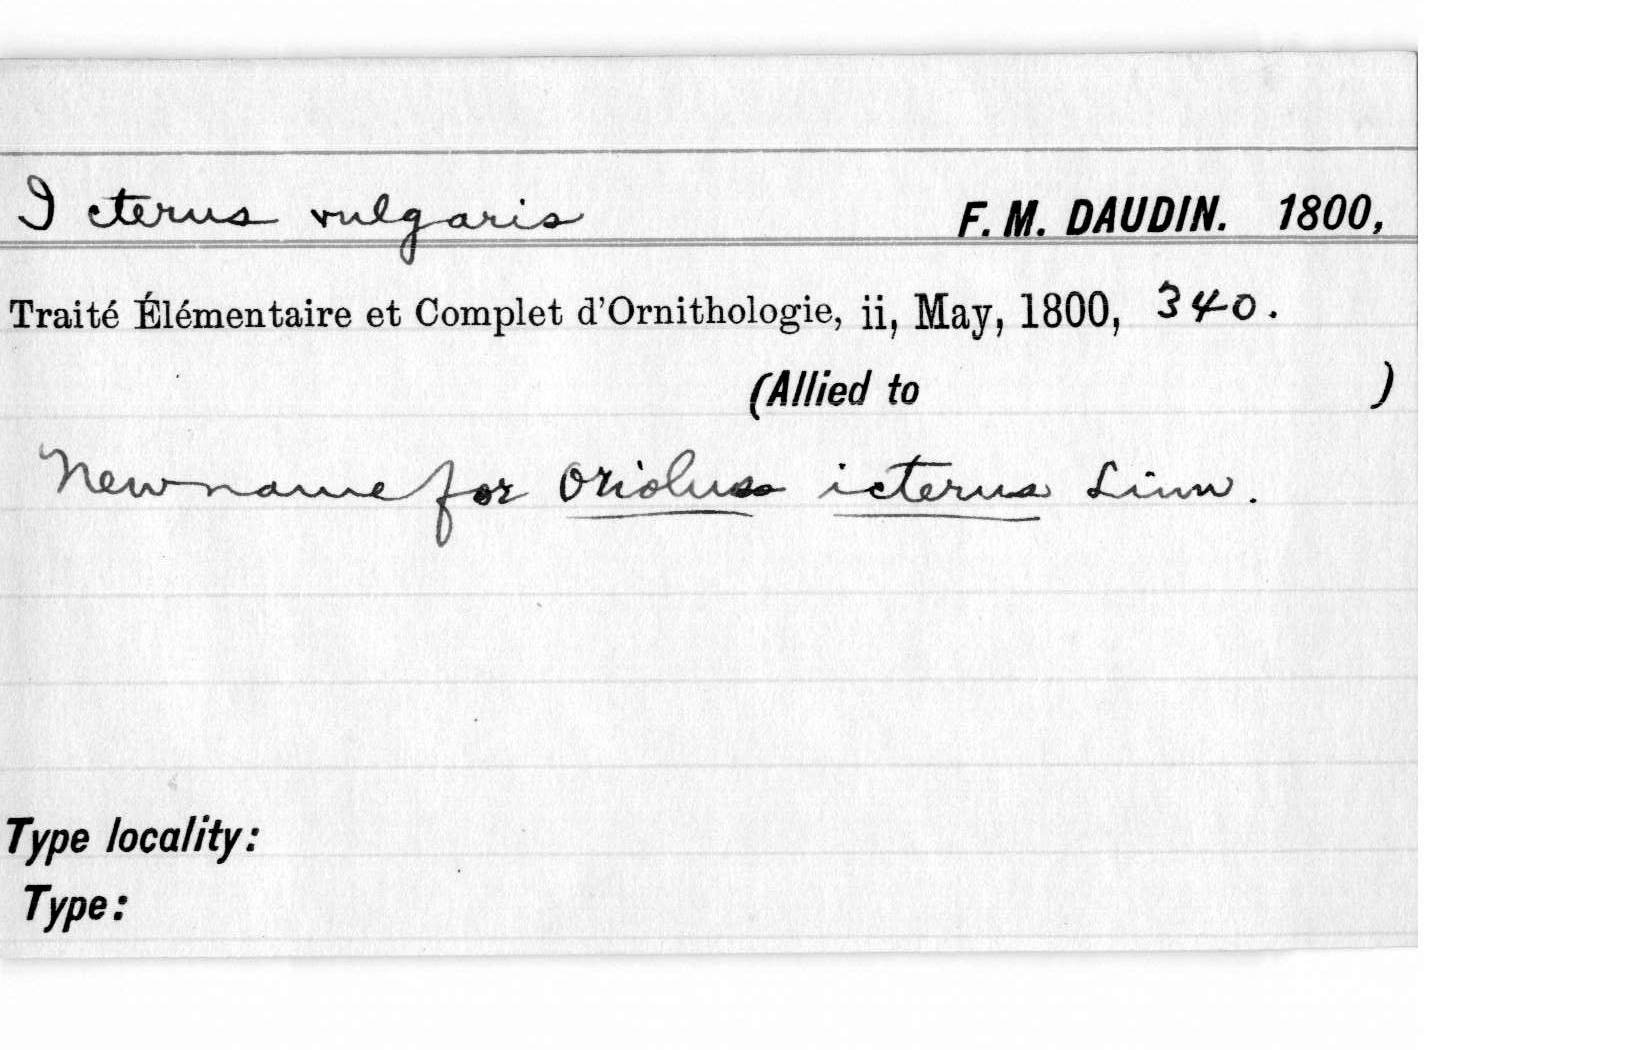 Icterus vulgaris F. M. DAUDIN. 1800,
Traité Élémentaire et Complet d'Ornithologie, ii, May, 1800, 340.
(Allied to )
New name for Oriolus icterus Linn.
Type locality:
Type: